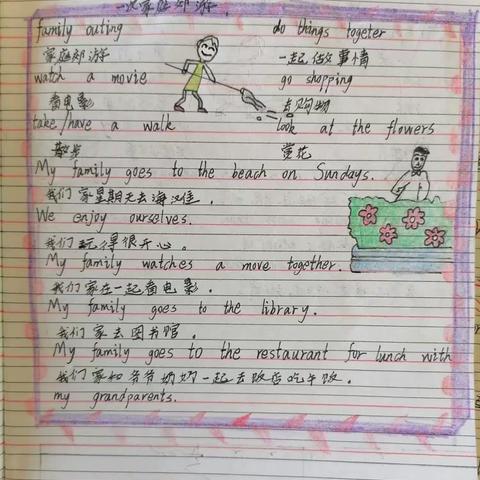 一次家庭郊游
family outing do things togeter
家庭郊游 一起做事情
watch a movie go shopping
看电影 去购物
take/have a walk look at the flowers
散步 赏花
My family goes to the beach on Sundays.
我们家星期天去海滩。
We enjoy ourselves.
我们玩得很开心。
My family watches a move together.
我们家在一起看电影。
My family goes to the library.
我们家去图书馆。
My family goes to the restaurant for lunch with
我们家和爷爷奶奶一起去饭店吃午饭。
my grandparents.